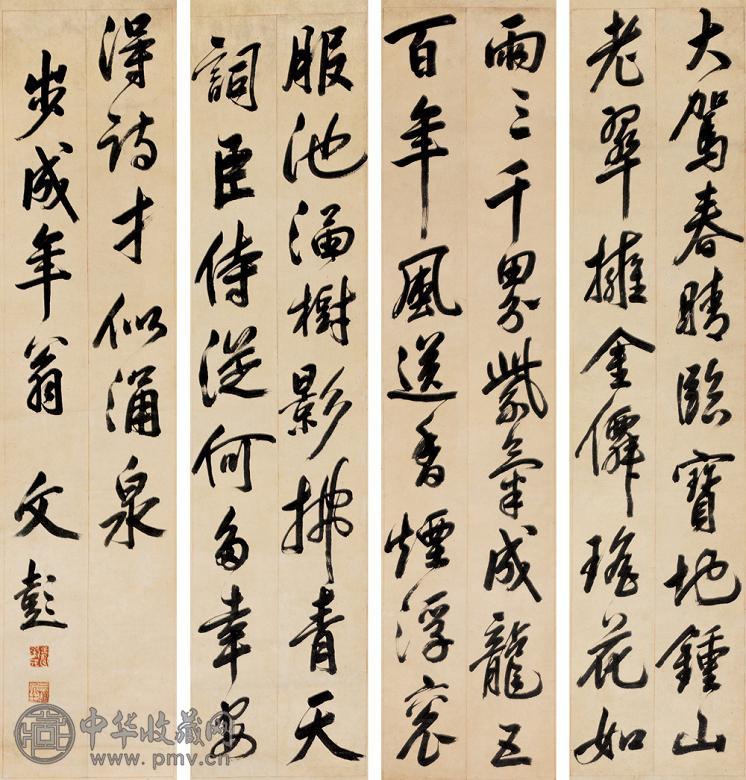 大駕春晴臨寶地鍾山
老翠擁金僊瑤花如
雨三千界紫氣成龍五
百年風送香煙浮袞
服池涵樹影拂青天
詞臣侍從何多幸安
得詩才似涌泉
步成年翁 文彭
中华收藏网
www.pmv.cn